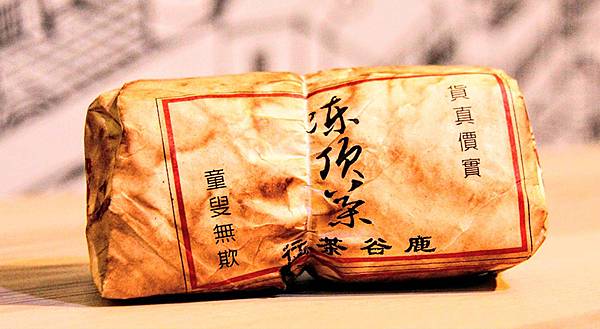 貨真價實
凍頂茶
童叟無欺
鹿谷茶行